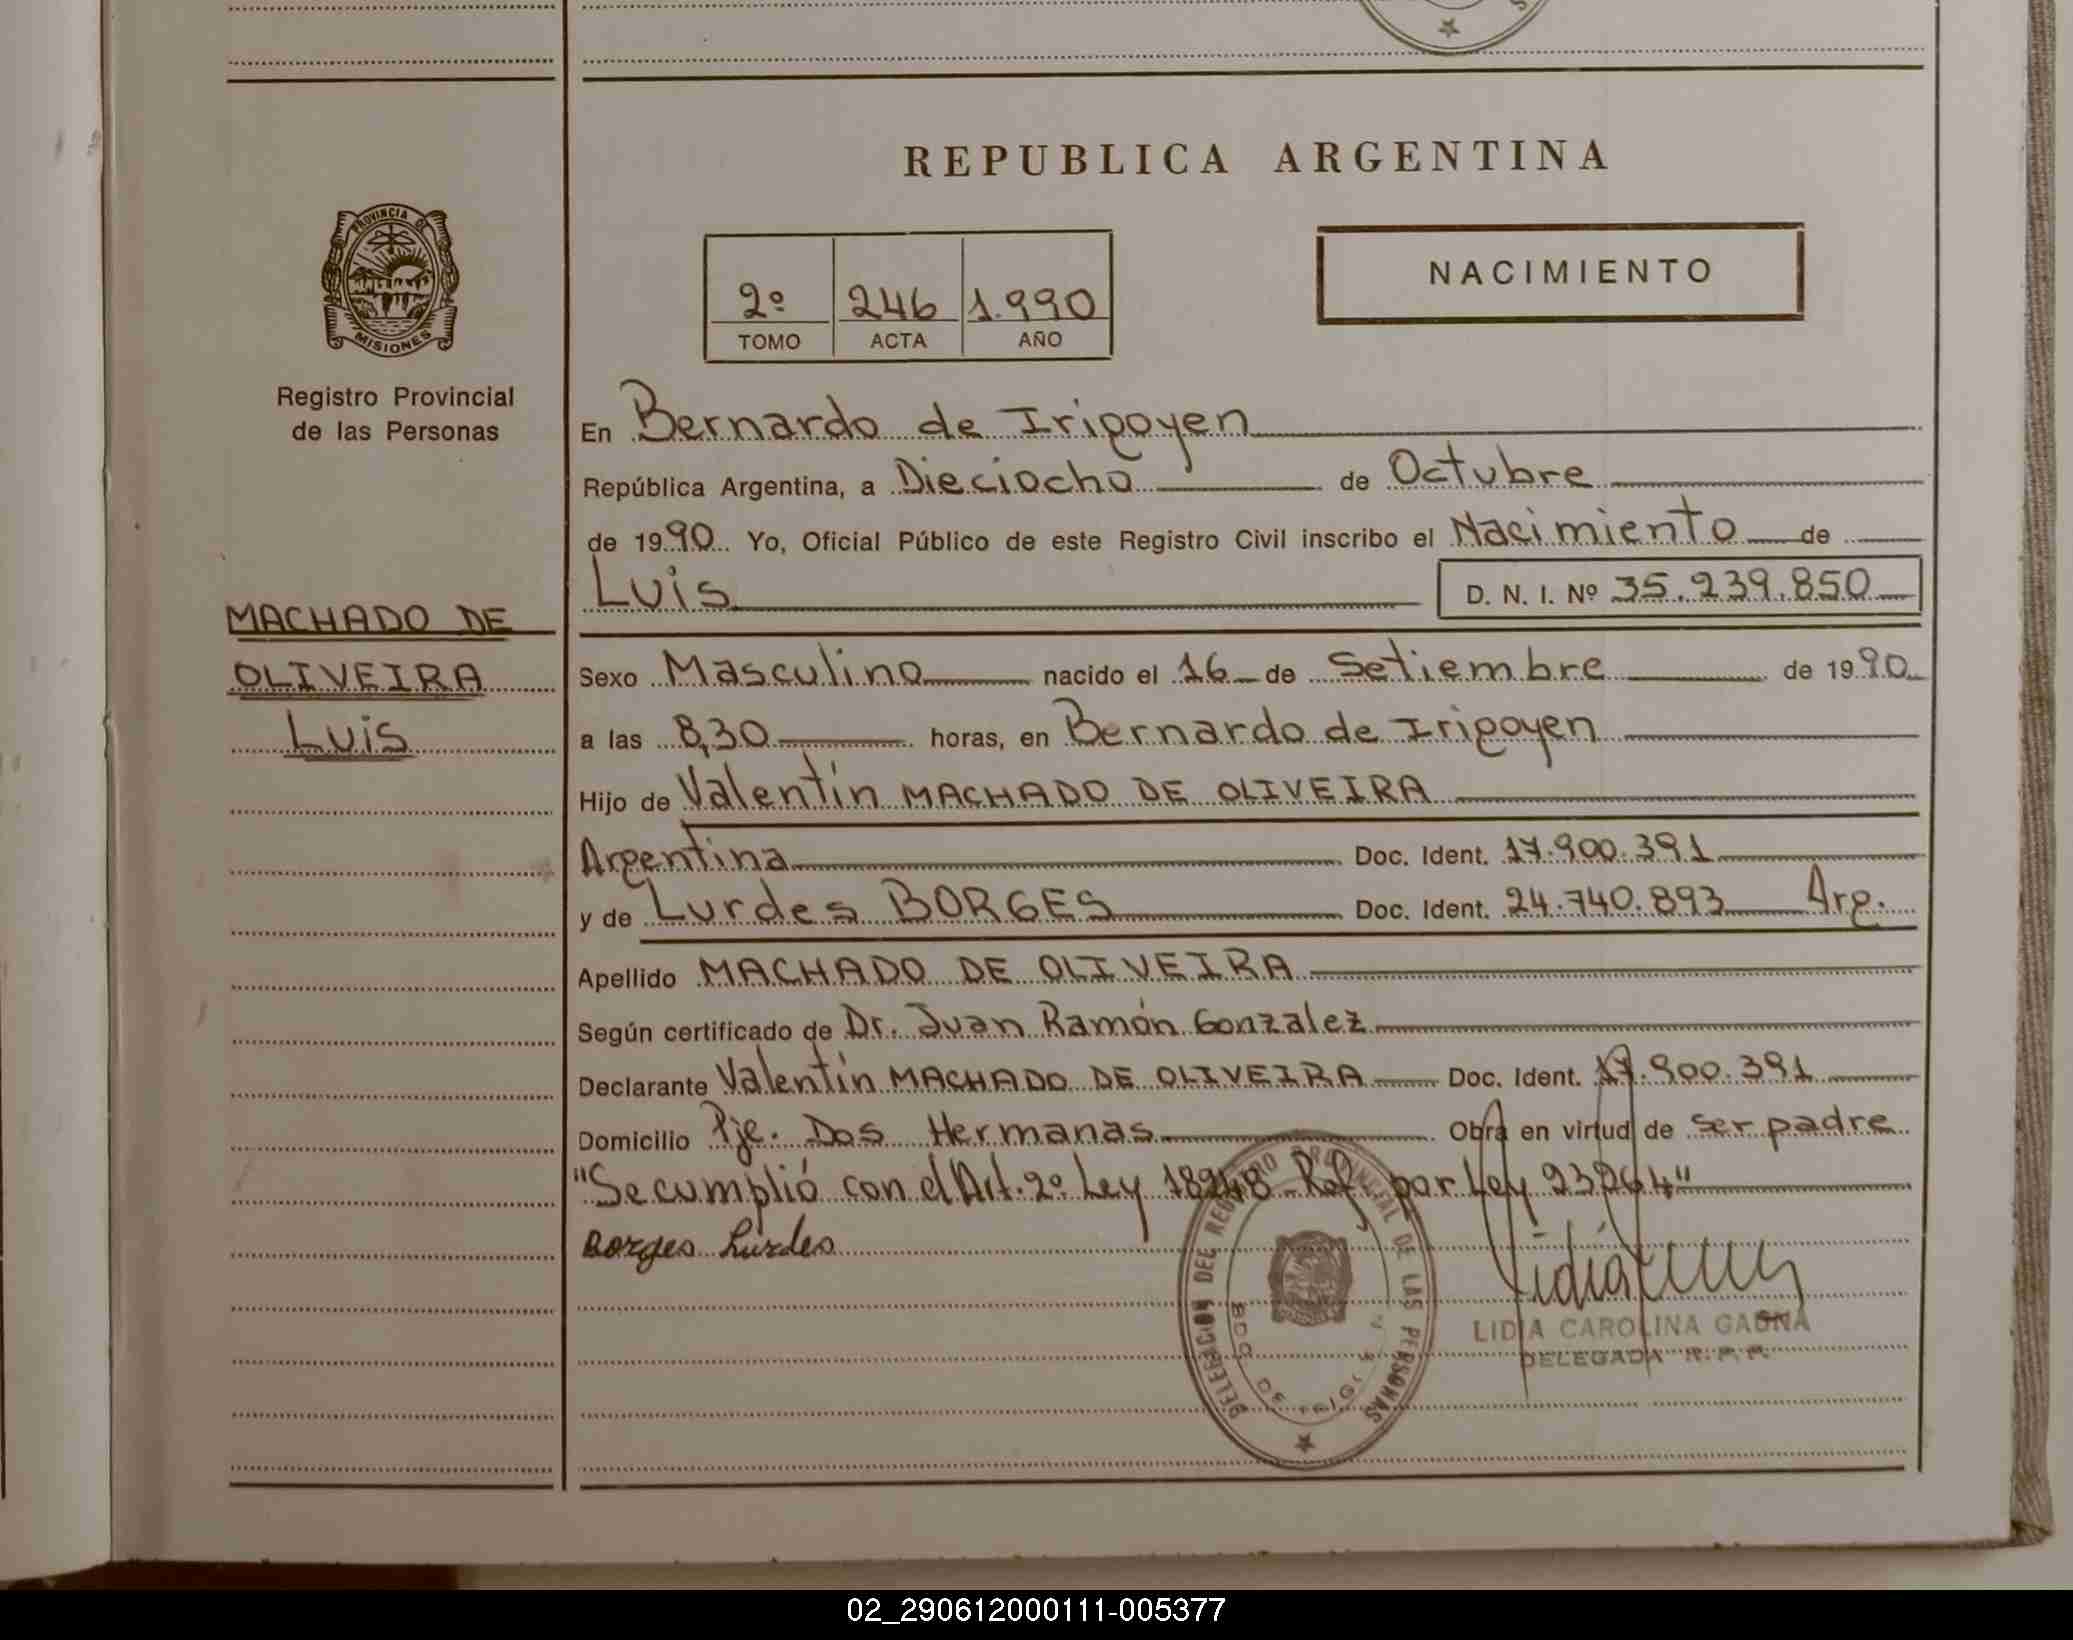 REPUBLICA ARGENTINA
PROVINCIA DE
MISIONES
Registro Provincial
de las Personas
MACHADO DE
OLIVEIRA
Luis
2º 246 1.990
TOMO ACTA AÑO
NACIMIENTO
En Bernardo de Irigoyen
República Argentina, a Dieciocho de Octubre
de 1990 Yo, Oficial Público de este Registro Civil inscribo el Nacimiento de
Luis D. N. I. Nº 35.239.850
Sexo Masculino nacido el 16 de Setiembre de 1990
a las 8,30 horas, en Bernardo de Irigoyen
Hijo de Valentín MACHADO DE OLIVEIRA
Argentina Doc. Ident. 17.900.391
y de Lurdes BORGES Doc. Ident. 24.740.893 Arg.
Apellido MACHADO DE OLIVEIRA
Según certificado de Dr. Juan Ramón Gonzalez
Declarante Valentín MACHADO DE OLIVEIRA Doc. Ident. 17.900.391
Domicilio Pje. Dos Hermanas Obra en virtud de ser padre
"Se cumplió con el Art. 2º Ley 18248 Ref. por Ley 23264"
Borges Lurdes
DELEGACION DEL REGISTRO PROVINCIAL DE LAS PERSONAS
BDO. DE
Lidia
LIDIA CAROLINA GAONA
DELEGADA R. P. P.
02_290612000111-005377